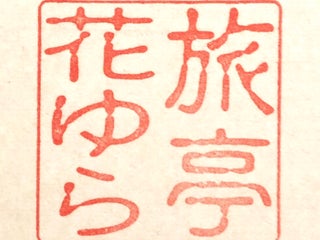 旅亭
花ゆら